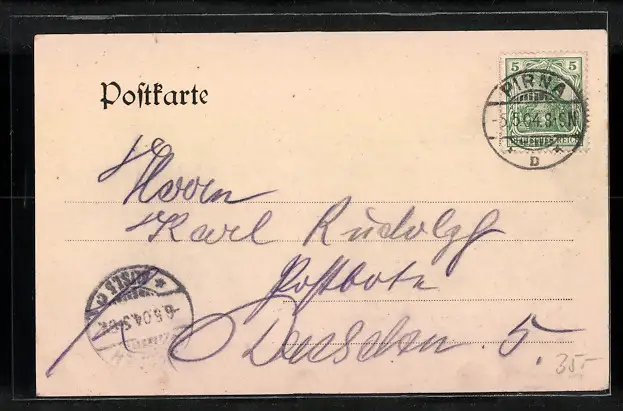 Postkarte
5 5
PIRNA
-5.5.04.8-9N
D
Herrn
Karl Rudolff
Postbote
Dresden 5.
6.5.04.
35-